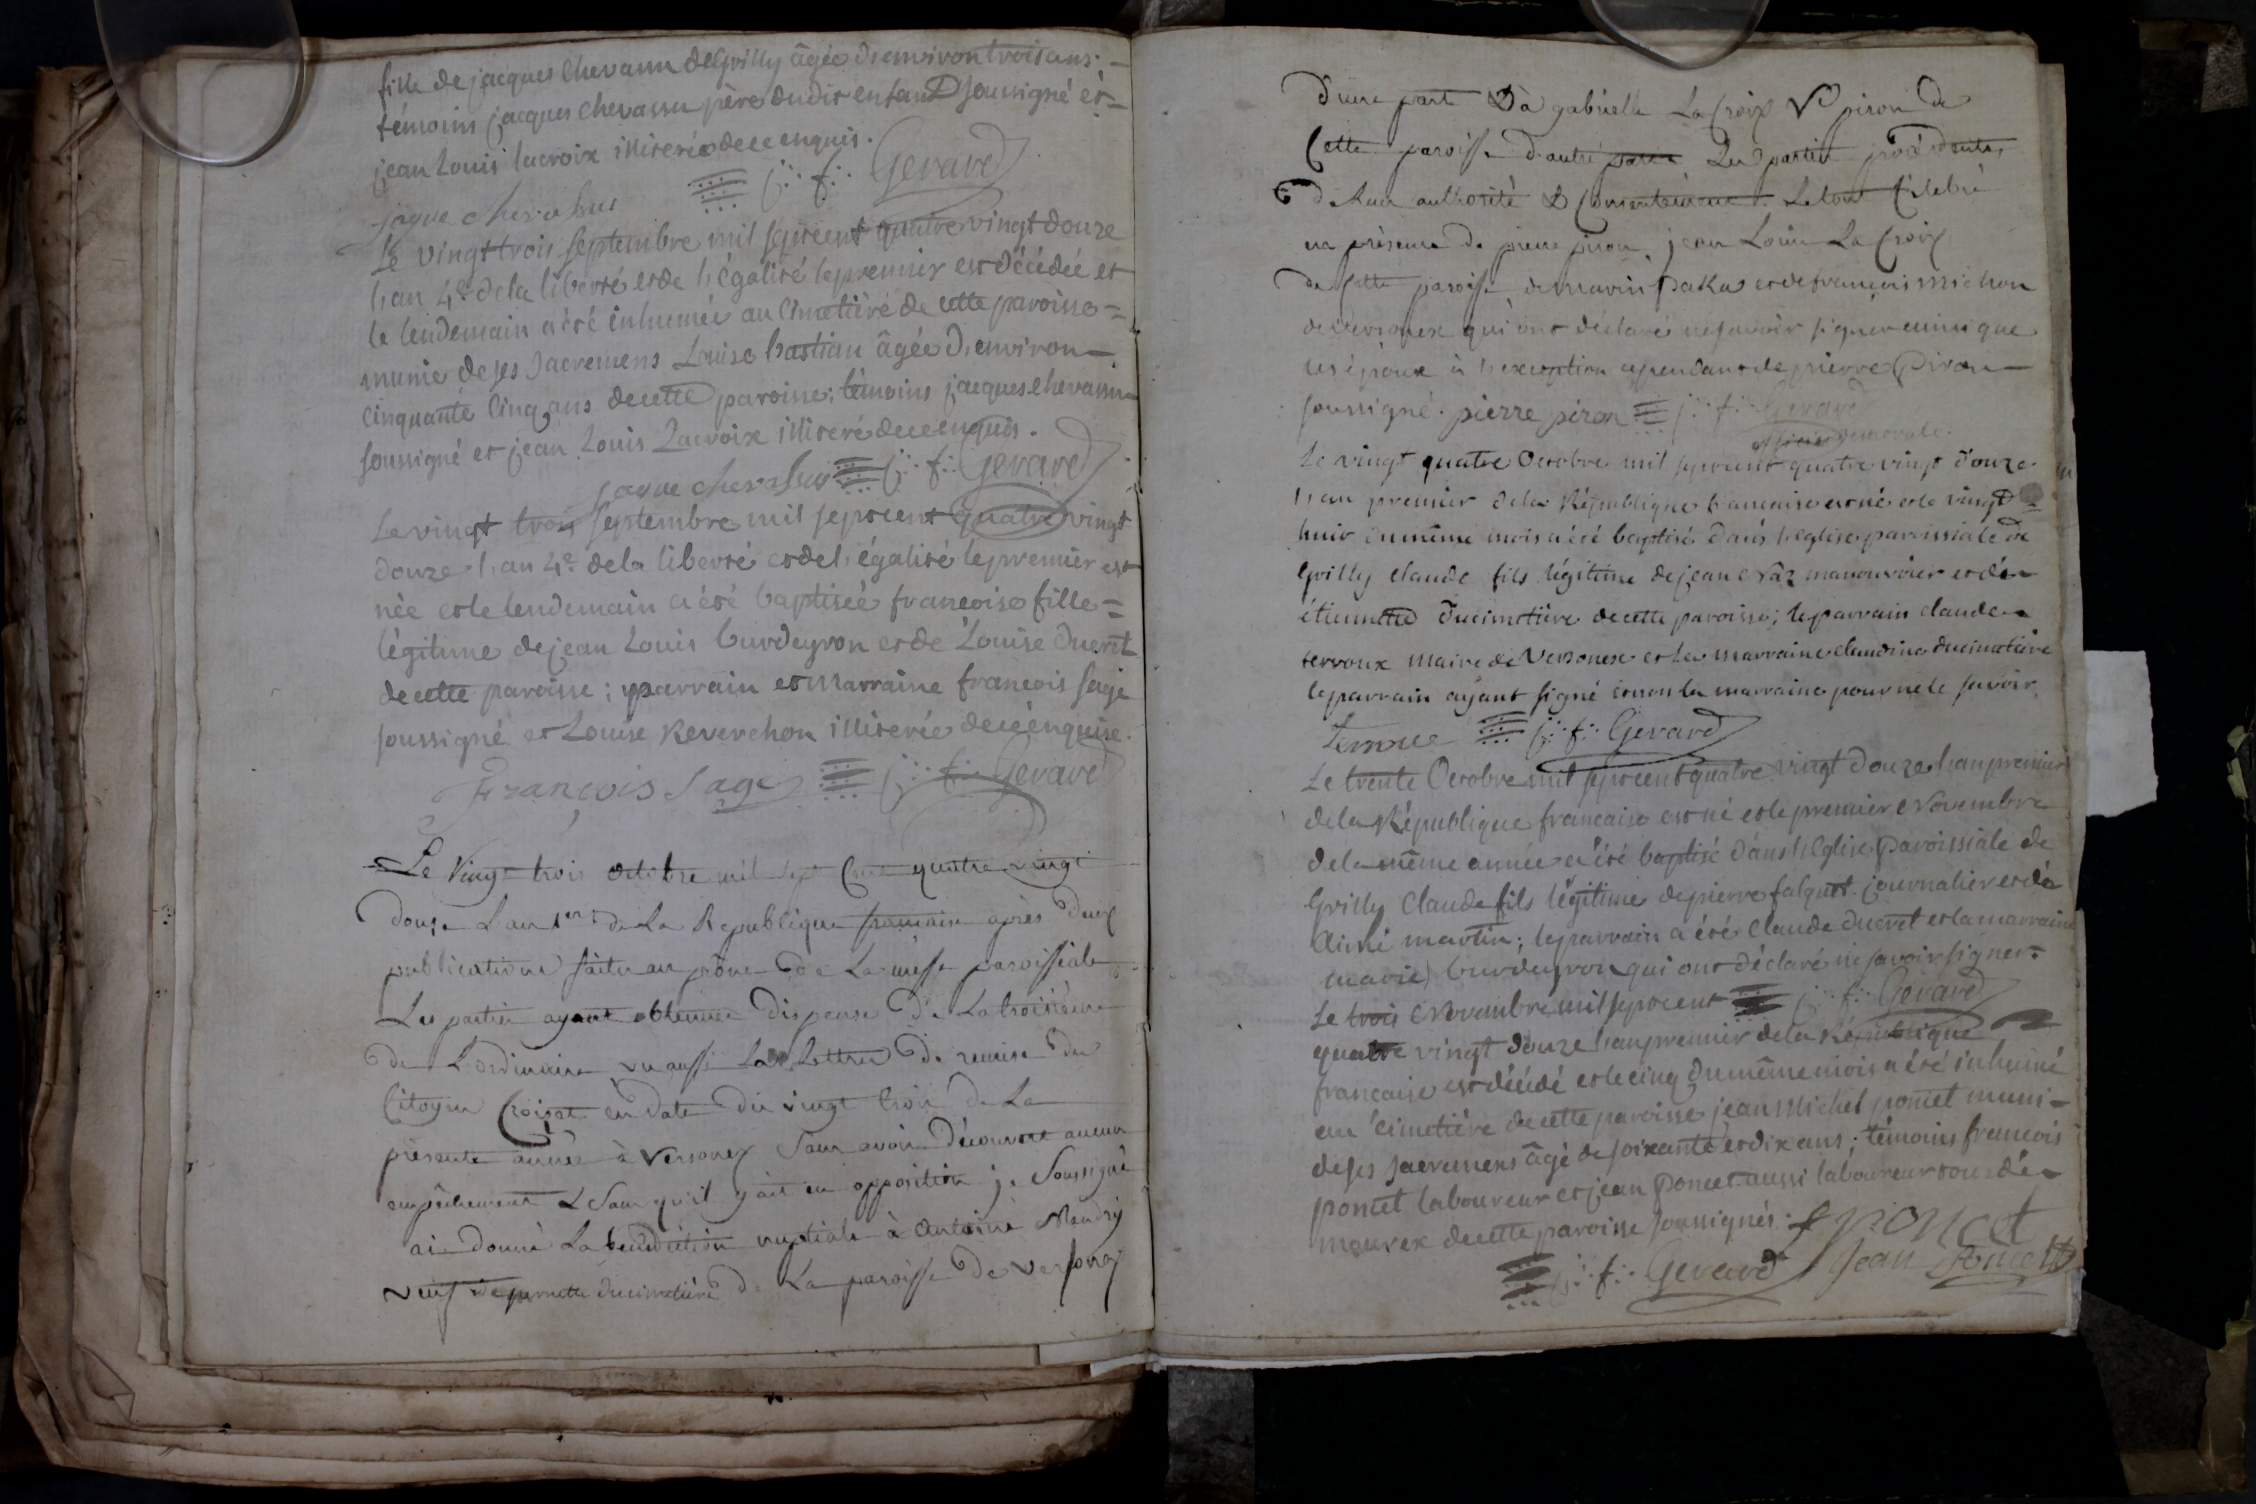 fille de jacques Chevassu de Grilly âgée d'environ trois ans.
témoins jacques Chevassu père dudit enfant soussigné et
jean Louis lacroix illiteré de ce enquis.
jaque chevassus Gerard
Le vingt trois septembre mil sept cent quatre vingt douze
l'an 4e de la liberté et de l'égalité le premier est décédée et
le lendemain a été inhumée au Cimetière de cette paroisse
munie de ses sacremens Louise bastian âgée d'environ
cinquante cinq ans de cette paroisse; témoins jacques Chevassu
soussigné et jean Louis Lacroix illiteré de ce enquis.
jaque chevassus Gerard
Le vingt trois septembre mil sept cent quatre vingt
douze l'an 4e de la liberté et de l'égalité le premier est
née et le lendemain a été baptisée francoise fille
légitime de jean Louis burdeyron et de Louise Ducret
de cette paroisse; parrain et marraine francois sage
soussigné et Louise Reverchon illiterée de ce enquise.
François Sage Gerard
Le vingt trois octobre mil sept Cent quatre vingt
douze L'an 1er de La Republique francaise après deux
publications faites au prône de La messe paroissiale
Les parties ayant obtenue dispense de La troisième
de L'ordinaire vu aussi La Lettre de remise du
Citoyen Croisat en date du vingt trois de La
présente année à Versonex Sans avoir découvert aucun
empêchement & Sans qu'il y ait eu opposition je Soussigné
ai donné La bénédiction nuptiale à antoine
veuf de pernette ducimetière de La paroisse de versonex
d'une part & à gabrielle La Croix Ve piron de
Cette paroisse d'autre part Les parties procédentes
de Leur authorité & Consentement. Le tout Célebré
en présence de pierre piron, jean Louis La Croix
de Cette paroisse, de marin et de francois michon
de versonex qui ont déclaré ne savoir signer ainsi que
les époux à l'exception cependant de pierre Piron
soussigné. pierre piron Gerard
Le vingt quatre Octobre mil sept cent quatre vingt douze
l'an premier de la République francaise est né et le vingt
huit du même mois a été baptisé dans l'eglise paroissiale de
Grilly claude fils légitime de jean manouvrier et d'
étiennette Ducimetière de cette paroisse; le parrain claude
terroux maire de Versonex et la marraine claudine ducimetière
le parrain ayant signé et non la marraine pour ne le savoir.
Terroux Gerard
Le trente Octobre mil sept cent quatre vingt douze l'an premier
de la République francaise est né et le premier Novembre
de la même année a été baptisé dans l'Eglise Paroissiale de
Grilly Claude fils légitime de pierre falquet journalier et d'
Aimé martin; le parrain a été Claude Ducret et la marraine
marie burdeyron qui ont déclaré ne savoir signer.
Le trois Novembre mil sept cent Gerard
quatre vingt douze l'an premier de la République
francaise est décédé et le cinq du même mois a été inhumé
au cimetière de cette paroisse jean Michel poncet muni
de ses sacremens âgé de soixante et dix ans; témoins francois
poncet laboureur et jean Poncet aussi laboureur tous de
mourex de cette paroisse soussignés. f poncet
Gerard Jean Poncet